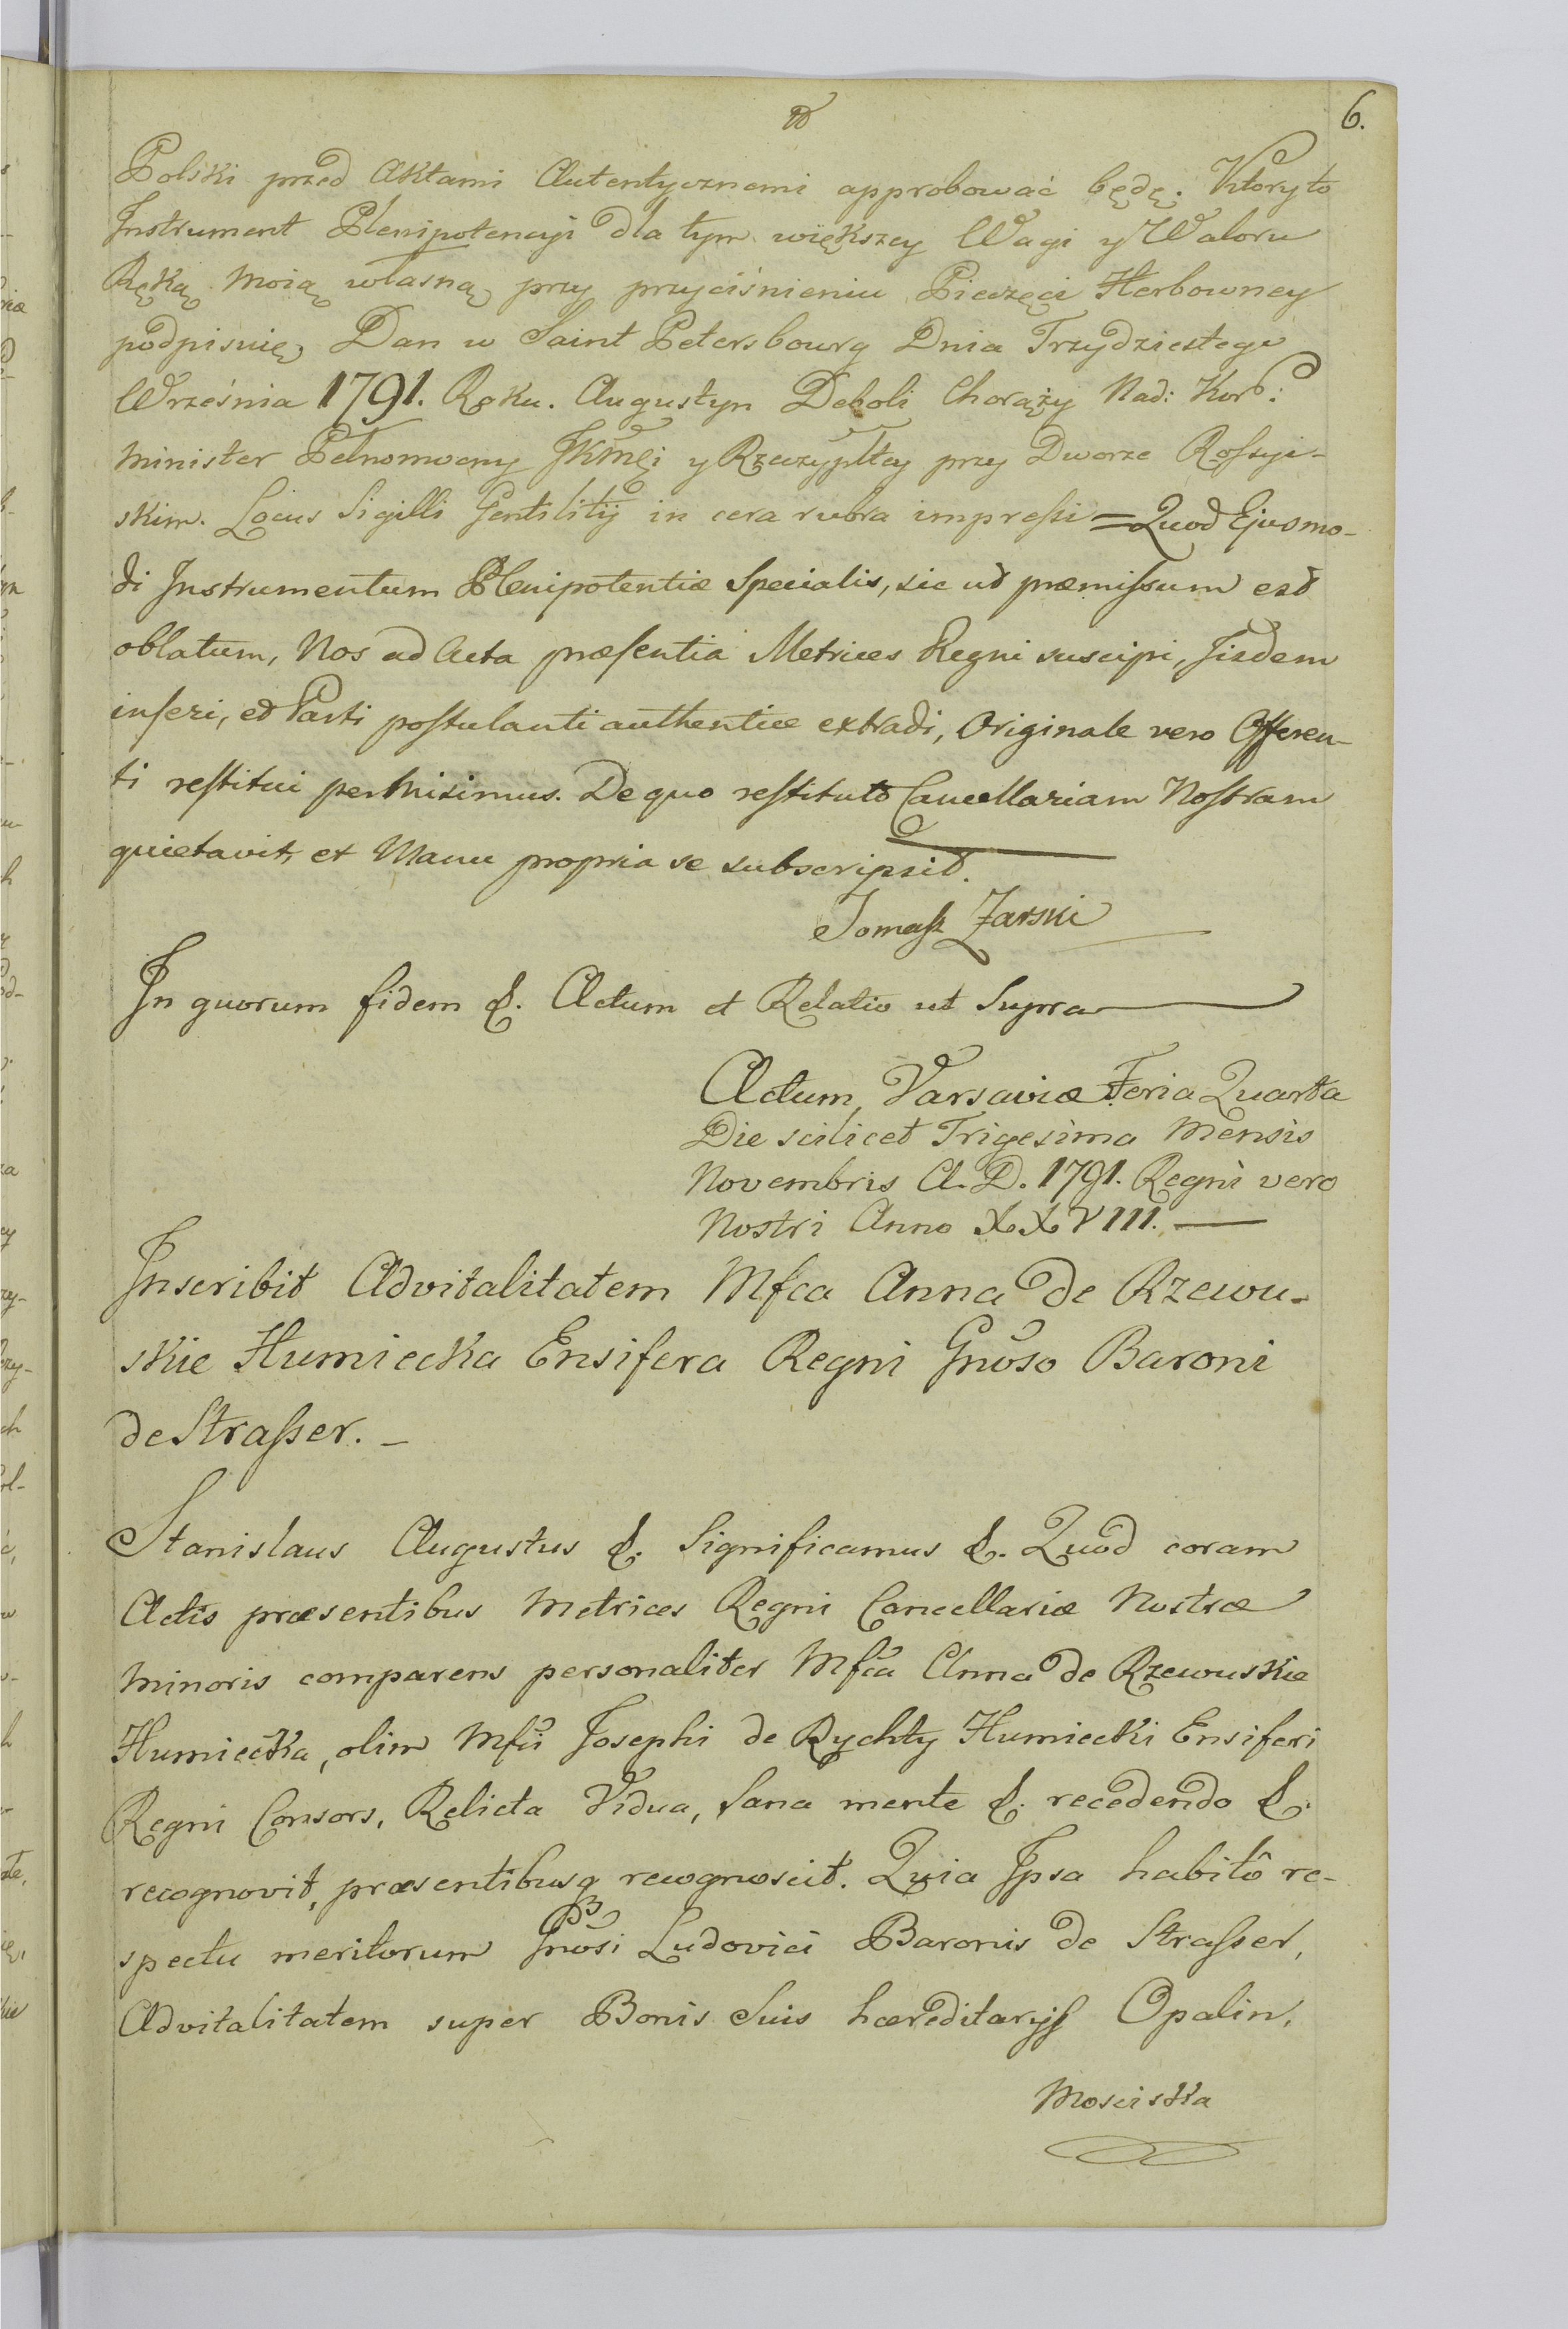 6.
Polski przed Aktami Autentycznemi approbować będę. Ktory to
Instrument Plenipotencyi dla tym większey Wagi y Waloru
Ręką moią własną przy przyciśnieniu Pieczęci Herbowney
podpisuię, Dan w Saint Petersbourg Dnia Trzydziestego
Września 1791. Roku. Augustyn Deboli Chorąży Nad: Kor:
Minister Pełnomocny JKMći y Rzeczyplłey przy Dworze Rossyi-
skim. Locus Sigilli Gentilitij in cera rubra impressi = Quod Ejusmo-
di Instrumentum Plenipotentiæ Specialis, sic ut præmissum est
oblatum, Nos ad Acta præsentia Metrices Regni suscipi, Jisdem
inseri, et Parti postulanti authentice extradi, Originale vero Offeren-
ti restitui permisimus. De quo restituto Cancellariam Nostram
quietavit, et Manu propria se subscripsit.
Tomasz Zarski
In quorum fidem &. Actum et Relatio ut Supra
Actum Varsaviæ Feria Quarta
Die scilicet Trigesima Mensis
Novembris A. D. 1791. Regni vero
Nostri Anno XXVIII.
Inscribit Advitalitatem Mfca Anna de Rzewu-
skie Humiecka Ensifera Regni Gnoso Baroni
de Strasser. -
Stanislaus Augustus &. Significamus &. Quod coram
Actis præsentibus Metrices Regni Cancellariæ Nostræ
Minoris comparens personaliter Mfca Anna de Rzewuskie
Humiecka, olim Mfci Josephi de Rychty Humiecki Ensiferi
Regni Consors, Relicta Vidua, sana mente &. recedendo &.
recognovit, præsentibusq recognoscit. Quia Ipsa habitô re-
spectu meritorum Gnosi Ludovici Baronis de Strasser,
Advitalitatem super Bonis Suis hæreditarijs Opalin,
Mosciska